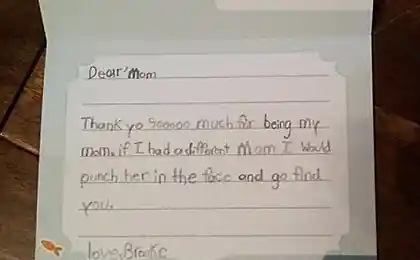 Dear Mom
Thank yo sooooo much for being my
mom. if I had a different Mom I would
punch her in the face and go find
you.
love, Brooke